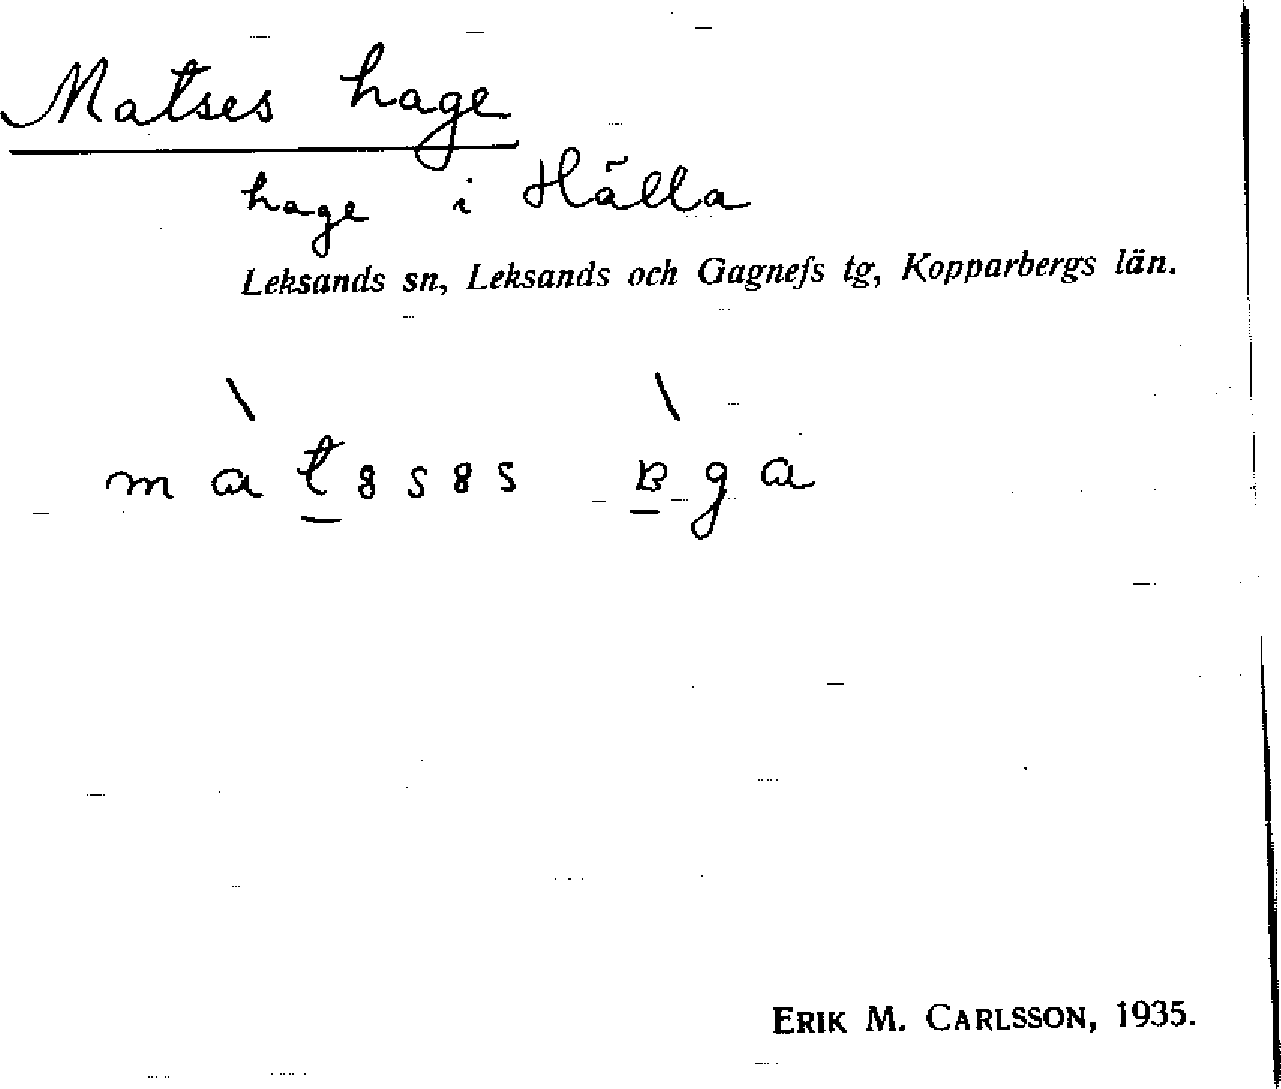 Matses hage
hage i Hälla
Leksands sn, Leksands och Gagnefs tg, Kopparbergs län.
ERIK M. CARLSSON, 1935.